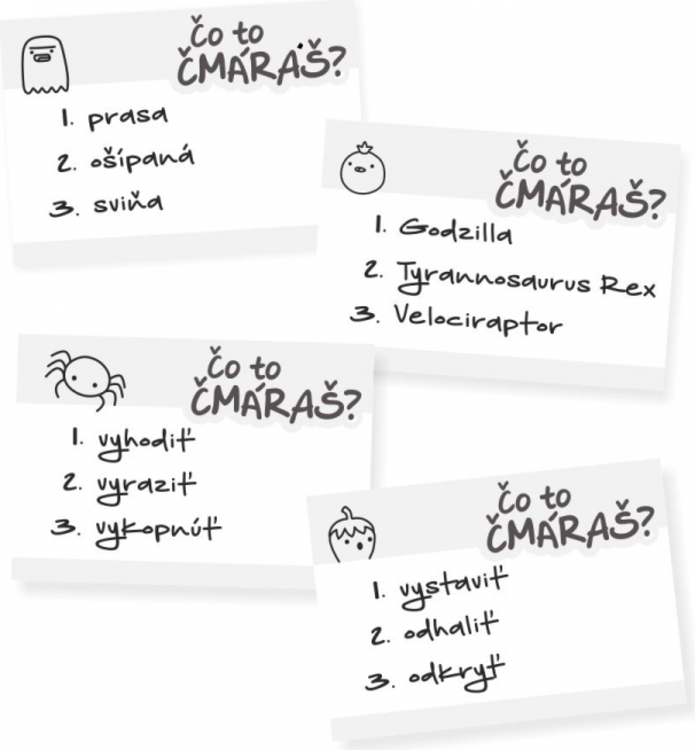 Čo to
ČMÁRAŠ?
1. prasa
2. ošípaná
3. sviňa
Čo to
ČMÁRAŠ?
1. Godzilla
2. Tyrannosaurus Rex
3. Velociraptor
Čo to
ČMÁRAŠ?
1. vyhodiť
2. vyraziť
3. vykopnúť
Čo to
ČMÁRAŠ?
1. vystaviť
2. odhaliť
3. odkryť